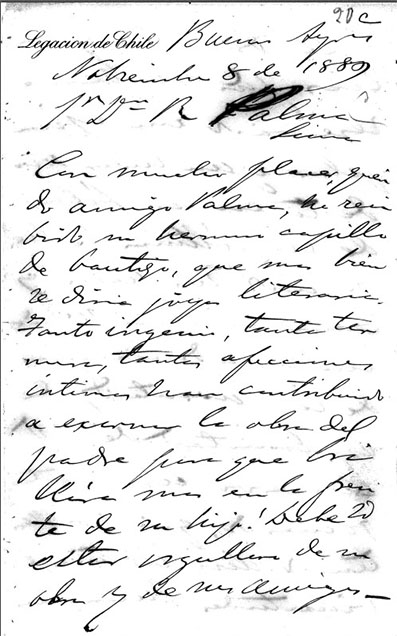 20 c
Legacion de Chile Buenos Ayres
Noviembre 8 de 1889
Sr Dn R Palma
Lima
Con mucho placer, queri
do amigo Palma, he reci
bido su hermoso capillo
de bautizo, que mas bien
se diria joya literaria.
Tanto ingenio, tanta ter
nura, tantas afecciones
intimas han contribuido
a exornar la obra del
padre para que bri
llára mas en la fren
te de su hijo! Debe Ud
estar orgulloso de su
obra y de sus amigos—